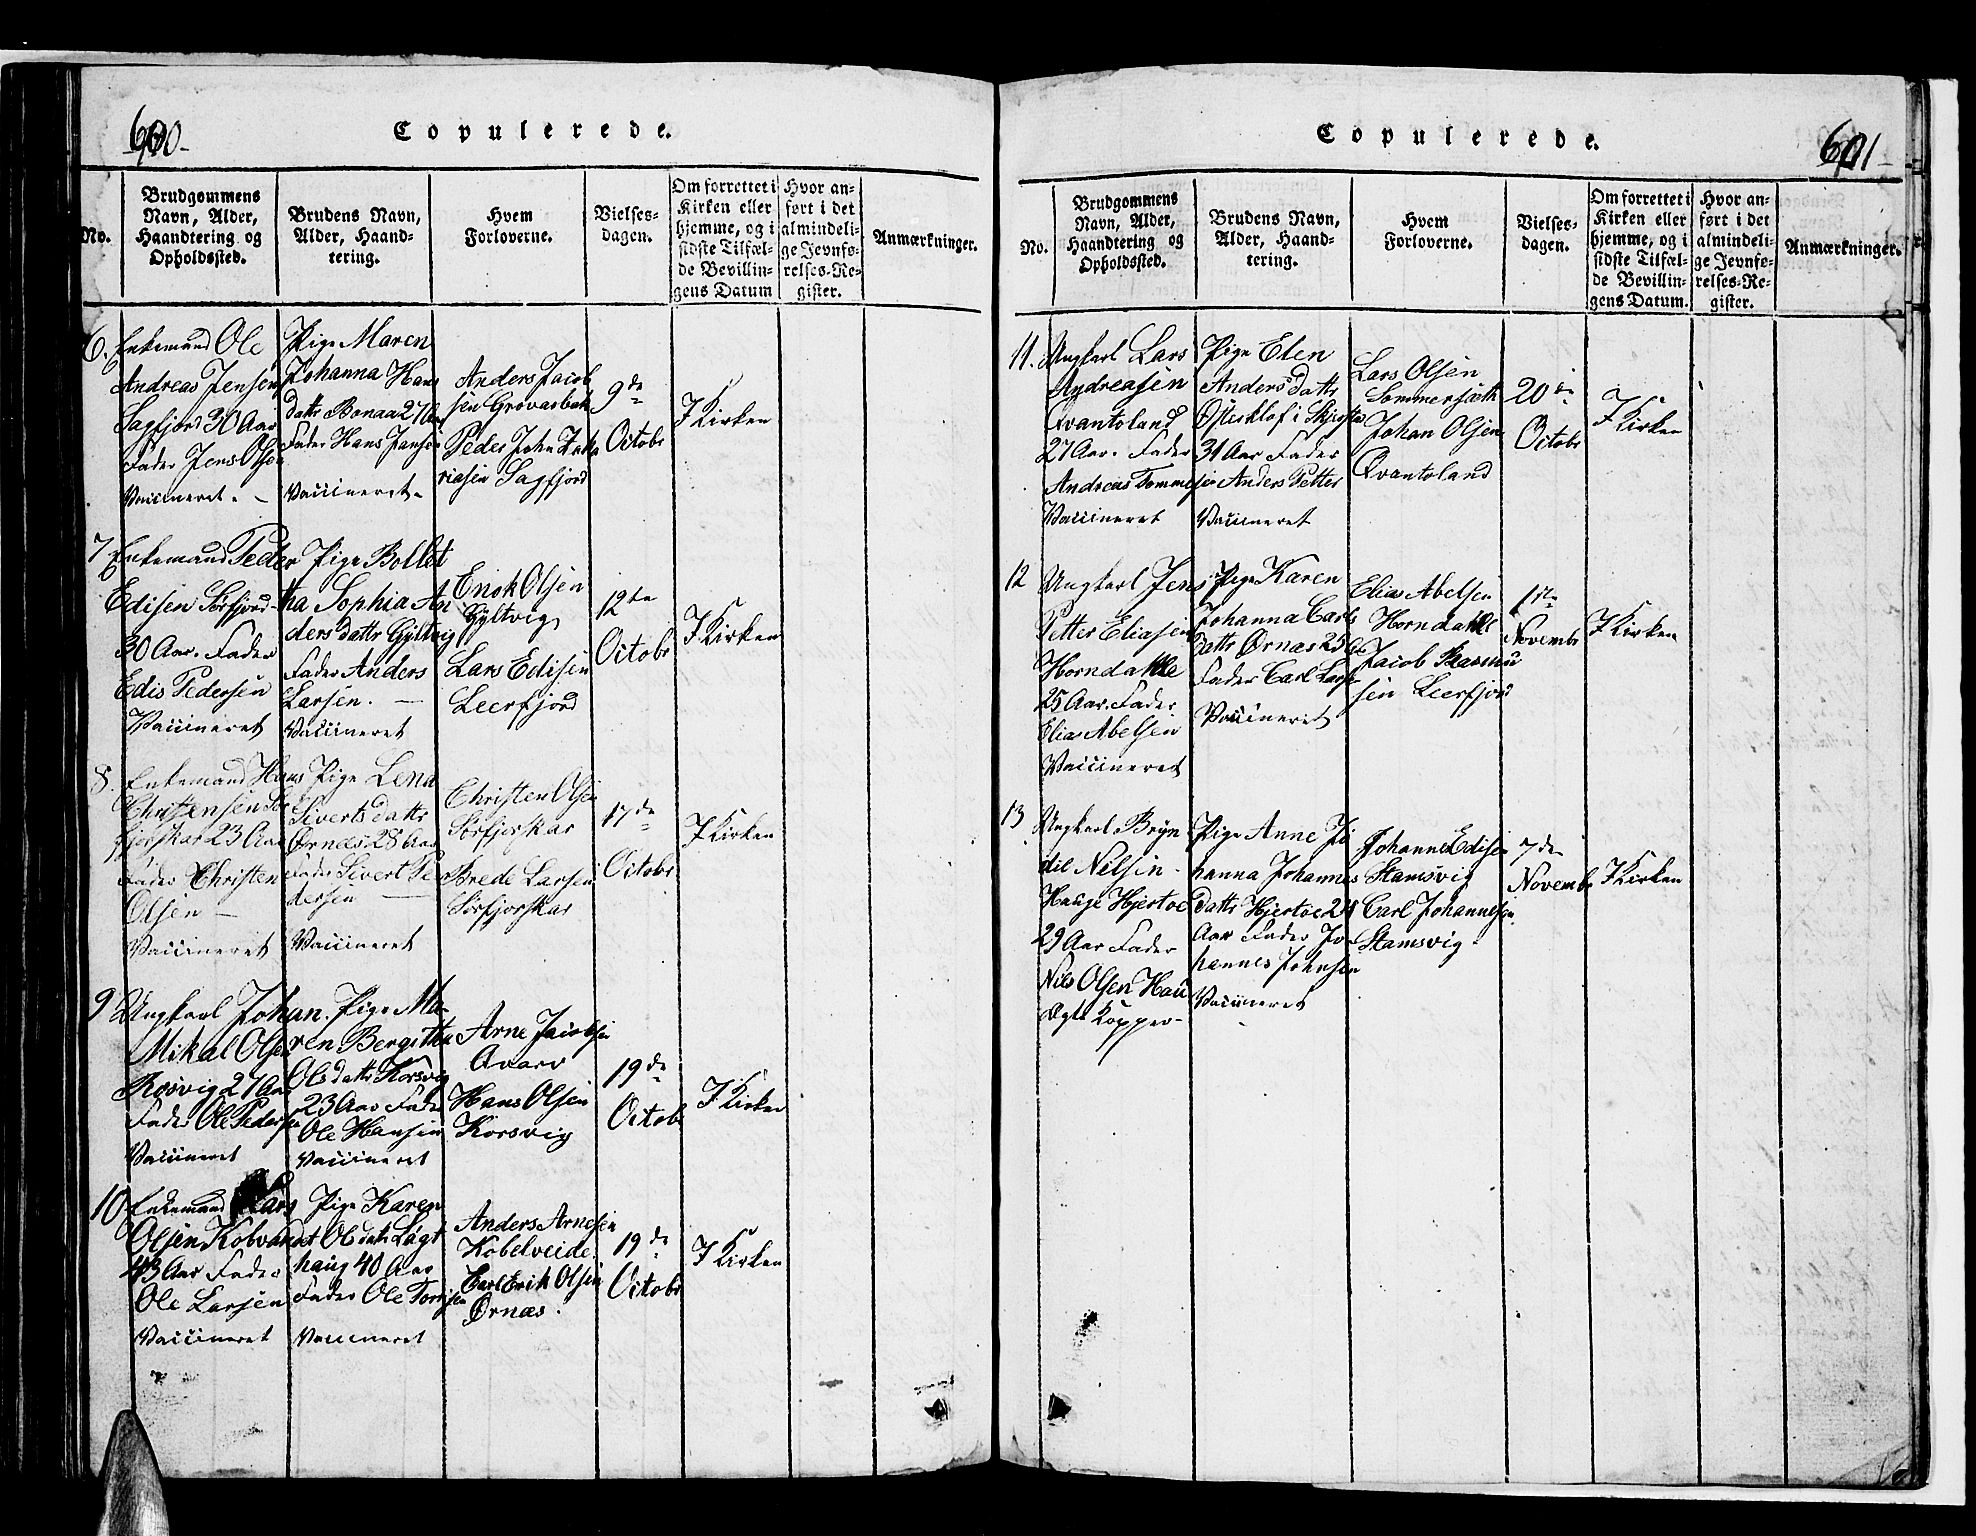 600
Copulerede.
No.
Brudgommens
Navn, Alder,
Haandtering og
Opholdssted.
Brudens Navn,
Alder, Haand-
tering.
Hvem
Forloverne.
Vielses-
dagen.
Om forrettet i
Kirken eller
hjemme, og i
sidste Tilfæl-
de Bevillin-
gens Datum
Hvor an-
ført i det
almindeli-
ge Jevnfø-
relses-Re-
gister.
Anmærkninger.
6.
Enkemand Ole
Andreas Jensen
Sagfjord 30 Aar
Fader Jens Olsen
Vaccineret. -
Pige Maren
Johanna Hans
dattr Bonaa 27 Aar
Fader Hans Jansen
Vaccineret -
Anders Jacob
sen Grovasbak
Peder John Zaka
riasen Sagfjord
9de
Octobr
I Kirken
7
Enkemand Peder
Edisen Sørfjord
30 Aar. Fader
Edis Pedersen
Vaccineret
Pige Bollet
tha Sophia An
ders dattr Gyltvig
Fader Anders
Larsen. —
Vaccineret
Enok Olsen
Gyltvig
Lars Edisen
Leerfjord
12te
Octobr
I Kirken
8.
Enkemand Hans
Christensen Sør
fjorskar 23 Aar
Fader Christen
Olsen —
Vaccineret
Pige Lena
Siverts dattr
Ørnæs 28 Aar
Fader Sivert Pe
dersen —
Vaccineret
Christen Olsen
Sørfjorskar
Brede Larsen
Sørfjorskar
17de
Octobr
I Kirken
9
Ungkarl Johan
Mikal Olsen
Rosvig 27 Aar
Fader Ole Pedersen
Vaccineret
Pige Ma-
ren Bergitha
Ols dattr Korsvig
23 Aar Fader
Ole Hansen
Vaccineret
Arne Jacobsen
Hans Olsen
Korsvig
19de
Octobr
I Kirken
10
Enkemand Lars
Olsen Kobvand
43 Aar Fader
Ole Larsen
Vaccineret
Pige Karen
Ols datr Lagt
haug 40 Aar
Fader Ole Torrisen
Vaccineret
Anders Arnesen
Kobelveide
Carl Erik Olsen
Ørnæs.
19de
Octobr
I Kirken
601
Copulerede.
No.
Brudgommens
Navn, Alder,
Haandtering og
Opholdssted.
Brudens Navn,
Alder, Haand-
tering.
Hvem
Forloverne.
Vielses-
dagen.
Om forrettet i
Kirken eller
hjemme, og i
sidste Tilfæl-
de Bevillin-
gens Datum.
Hvor an-
ført i det
almindeli-
ge Jevnfø-
relses-Re-
gister.
Anmærkninger.
11.
Ungkarl Lars
Andreasen
Qvantoland
27 Aar. Fader
Andreas Tommesen
Vaccineret
Pige Elen
Anders datr
31 Aar Fader
Anders Petter
Vaccineret
Lars Olsen
Sommersæth
Johan Olsen
Qvantoland
20de
Octobr
I Kirken
12
Ungkarl Jens
Petter Eliasen
Horndahle
25 Aar. Fader
Elias Abelsen
Vaccineret
Pige Karen
Johanna Carls
datr Ørnæs 25 Aar
Fader Carl Larsen
Vaccineret
Elias Abelsen
Horndahle
Jacob Rasmu
sen Leerfjord
1ste
Novembr
I Kirken
13
Ungkarl Bryn
dil Nilsen -
Hauge Hjertøe
29 Aar Fader
Nils Olsen Hau
Pige Anne Jo
hanna Johannes
datr Hjertøe 24
Aar Fader Jo-
hannes Johnsen
Vaccineret
Johannes Edisen
Stamsvig
Carl Johannesen
Stamsvig
7de
Novembr
I Kirken